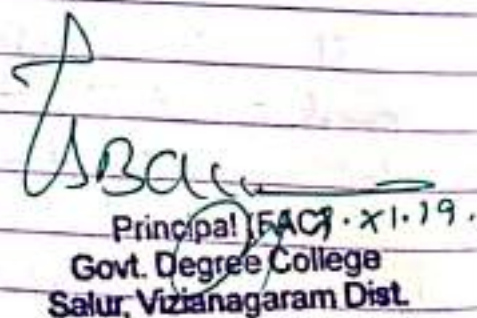 Principal (FAC)
Govt. Degree College
Salur, Vizianagaram Dist.